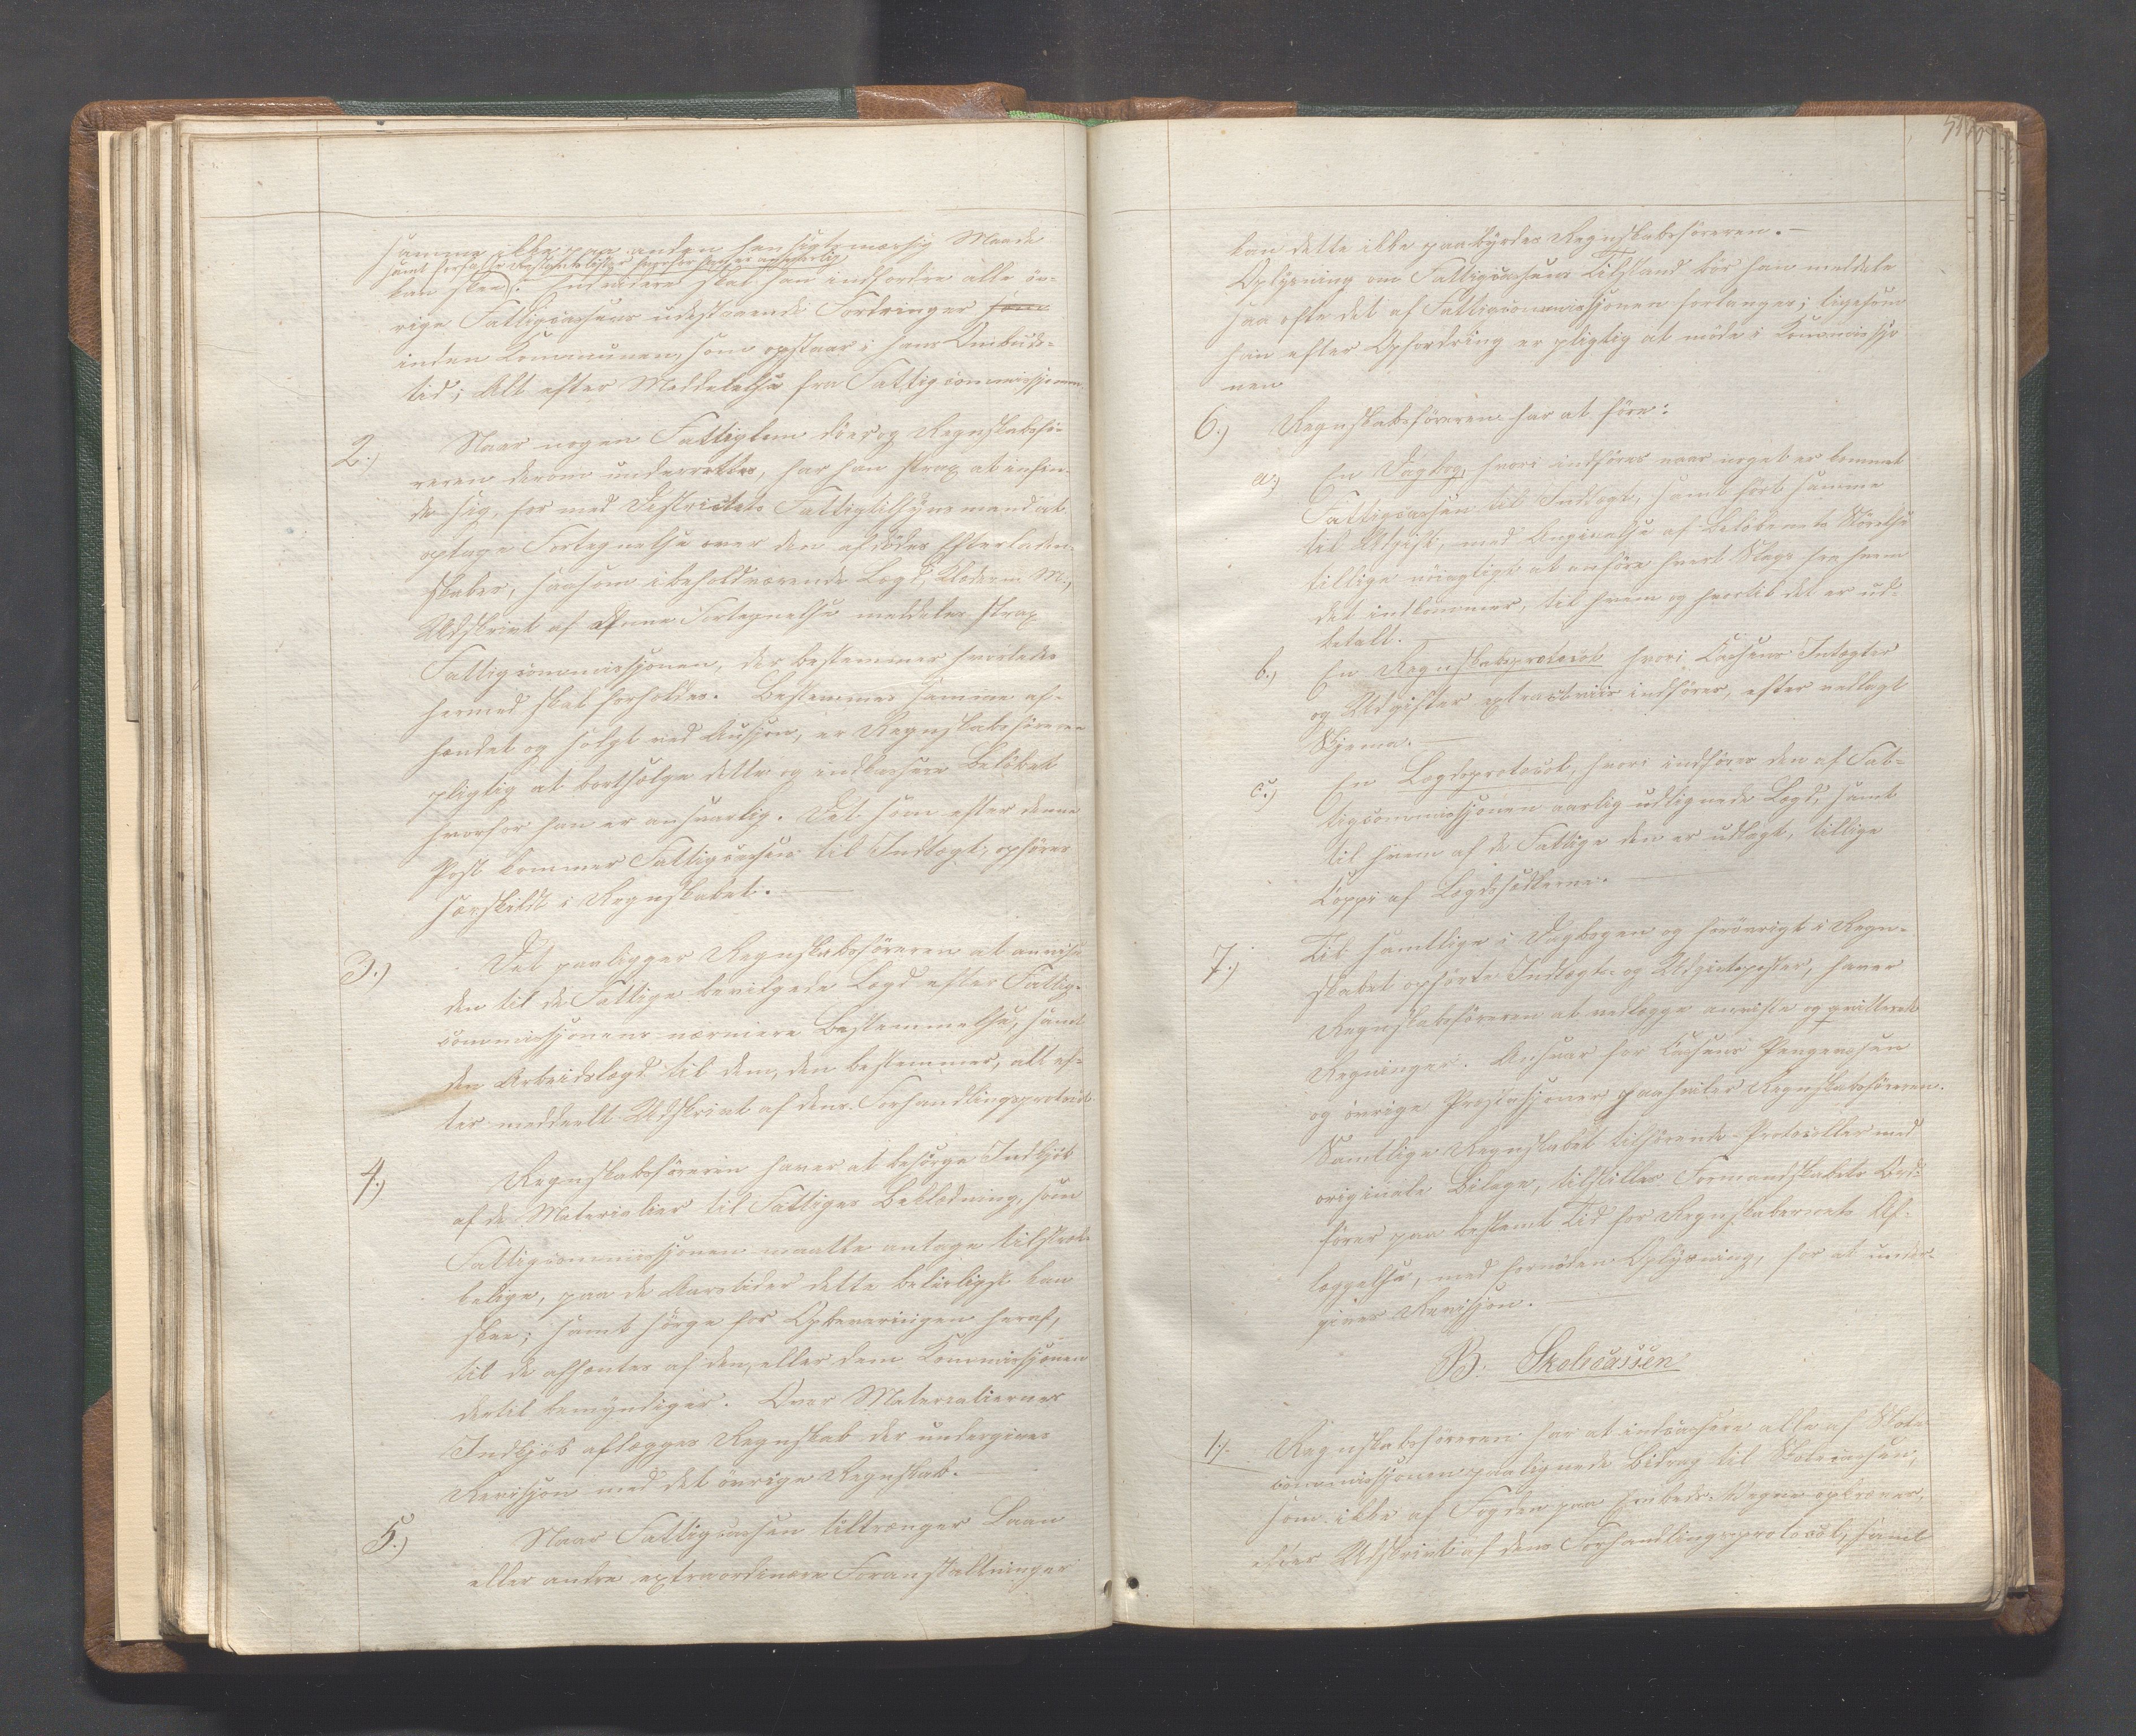 samme ikke paa anden hensigtsmæssig Maade
samt forfatte Restancelister hvorfor han er ansvarlig
kan skee). Endvidere skal han indfordre alle öv-
rige Fattigcassens udestaaende Fordringer som
inden Kommunen, som opstaar i hans Ombuds-
tid; Alt efter Meddelelse fra Fattigcommissjonen.
2.) Naar nogen Fattiglem döer og Regnskabsfö-
reren derom underrettes, har han strax at infin-
de sig, for med Districtets Fattigtilsynsmand at
optage Fortegnelse over den afdödes Efterladen-
skaber, saasom i behold værende Lægd, Klæder m. M.,
Udskrivt af denne Fortegnelse meddeles strax
Fattigcommissjonen, der bestemmer hvorledes
hermed skal forholdes. Bestemmes samme af-
hændet og solgt ved Auksjon, er Regnskabsföreren
pligtig at bortsælge dette og indkassere Belöbet
hvorfor han er ansvarlig. Det som efter denne
Post kommer Fattigcassen til Indtægt, opföres
særskildt i Regnskabet.
3.) Det paaligger Regnskabsföreren at anvise
den til de Fattige bevilgede Lægd efter Fattig-
commissjonens nærmere Bestemmelse, samt
den Arbeidslægd til dem, den bestemmes, alt ef-
ter meddeelt Udskrivt af dens Forhandlingsprotocol.
4.) Regnskabsföreren haver at besörge Indkjöb
af de Materialier til Fattiges Beklædning, som
Fattigcommissjonen maatte antage tilstræk-
kelige, paa de Aarstider dette beleiligst kan
skee; samt sörge for Opbevaringen heraf,
til de afhentes af den, eller dem Kommissjonen
dertil bemyndiger. Over Materialiernes
Indkjöb aflægges Regnskab der undergives
Revisjon med det övrige Regnskab.
5.) Naar Fattigcassen tiltrænger Laan
eller andre extraordinære Foranstaltninger
kan dette ikke paabyrdes Regnskabsföreren.
Oplysning om Fattigcassens Tilstand bör han meddele
saa ofte det af Fattigcommissjonen forlanges; ligesom
han efter Opfordring er pligtig at möde i Kommissjo
nen
6.) Regnskabsföreren har at före:
a.) En Dagbog, hvori indföres naar noget er kommet
Fattigcassen til Indtægt, samt hört samme
til Udgift, med Angivelse af Belöbenets Störelse
tillige nöiagtigt at anföre hvert Slags fra hvem
det indkommer, til hvem og hvortil det er ud-
betalt.
b.) En Regnskabsprotocol hvori Cassens Indtægter
og Udgifter extractviis indföres, efter vedlagt
Skjema.
c.) En Lægdsprotocol, hvori indföres den af Fat-
tigcommissjonen aarlig udlignede Lægd, samt
til hvem af de Fattige den er udlagt, tillige
Coppi af Lægdssedlerne.
7.) Til samtlige i Dagbogen og forövrigt i Regn-
skabet opförte Indtægts- og Udgiftsposter, haver
Regnskabsföreren at vedlægge anviste og qvitterede
Regninger. Ansvar for Cassens Pengevæsen
og övrige Præstasjoner paahviler Regnskabsföreren.
Samtlige Regnskabet tilhörende Protocoller med
originale Bilage, tilstilles Formandskabets Ord-
förer paa bestemt Tid for Regnskabernets Af-
læggelse, med fornöden Oplysning, for at under-
gives Revisjon.
B. Skolecassen
1.) Regnskabsföreren har at indcassere alle af Skole
commissjonen paalignede Bidrag til Skolecassen,
som ikke af Fogden paa Embeds Vegne opkræves,
efter Udskrivt af dens Forhandlingsprotocol, samt